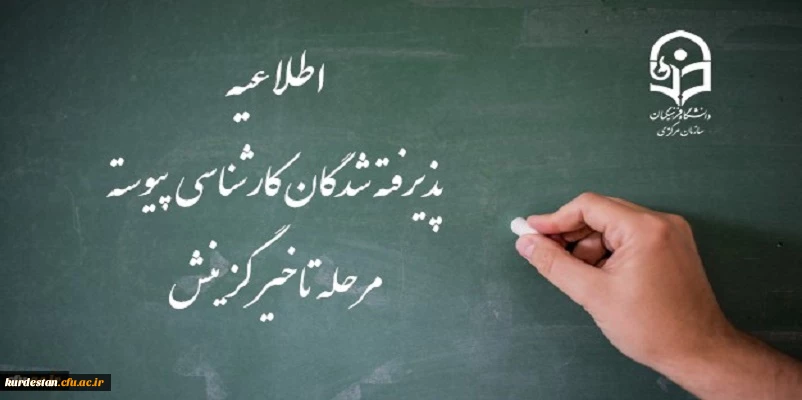 اطلاعیه
پذیرفته شدگان کارشناسی پیوسته
مرحله تاخیر گزینش
دانشگاه فرهنگیان
سازمان مرکزی
kurdestan.cfu.ac.ir